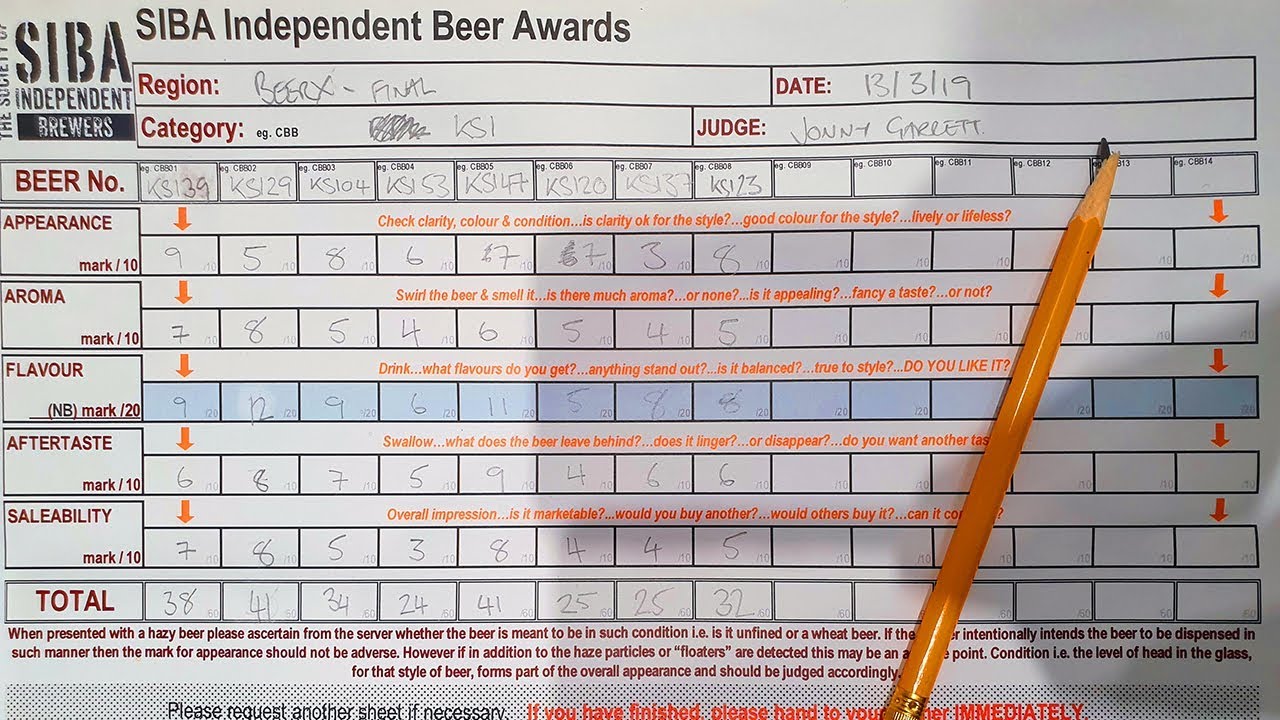 THE SOCIETY OF
SIBA
INDEPENDENT
BREWERS
SIBA Independent Beer Awards
Region: BEERX - FINAL DATE: 13/3/19
Category: eg. CBB KS1 JUDGE: JONNY GARRETT.
eg. CBB01 eg. CBB02 eg. CBB03 eg. CBB04 eg. CBB05 eg. CBB06 eg. CBB07 eg. CBB08 eg. CBB09 eg. CBB10 eg. CBB11 eg. CBB12 eg. CBB14
BEER No. KS139 KS129 KS104 KS153 KS147 KS120 KS137 KS123
APPEARANCE Check clarity, colour & condition...is clarity ok for the style?...good colour for the style?...lively or lifeless?
mark / 10 9 /10 5 /10 8 /10 6 /10 7 /10 7 /10 3 /10 8 /10 /10 /10 /10 /10 /10
AROMA Swirl the beer & smell it...is there much aroma?...or none?...is it appealing?...fancy a taste?...or not?
mark / 10 7 /10 8 /10 5 /10 4 /10 6 /10 5 /10 4 /10 5 /10 /10 /10 /10 /10 /10
FLAVOUR Drink...what flavours do you get?...anything stand out?...is it balanced?...true to style?...DO YOU LIKE IT?
(NB) mark /20 9 /20 12 /20 9 /20 6 /20 11 /20 5 /20 8 /20 8 /20 /20 /20 /20 /20 /20
AFTERTASTE Swallow...what does the beer leave behind?...does it linger?...or disappear?...do you want another
mark / 10 6 /10 8 /10 7 /10 5 /10 9 /10 4 /10 6 /10 6 /10 /10 /10 /10 /10 /10
SALEABILITY Overall impression...is it marketable?...would you buy another?...would others buy it?...can it
mark / 10 7 /10 8 /10 5 /10 3 /10 8 /10 4 /10 4 /10 5 /10 /10 /10 /10 /10 /10
TOTAL 38 /60 41 /60 34 /60 24 /60 41 /60 25 /60 25 /60 32 /60 /60 /60 /60 /60 /60
When presented with a hazy beer please ascertain from the server whether the beer is meant to be in such condition i.e. is it unfined or a wheat beer. If the intentionally intends the beer to be dispensed in
such manner then the mark for appearance should not be adverse. However if in addition to the haze particles or “floaters” are detected this may be an point. Condition i.e. the level of head in the glass,
for that style of beer, forms part of the overall appearance and should be judged accordingly.
Please request another sheet if necessary. If you have finished, please hand to your IMMEDIATELY